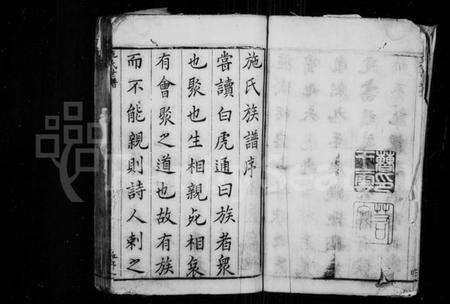 施氏族譜序
嘗讀白虎通曰族者衆
也聚也生相親死相哀
有會聚之道也故有族
而不能親則詩人刺之